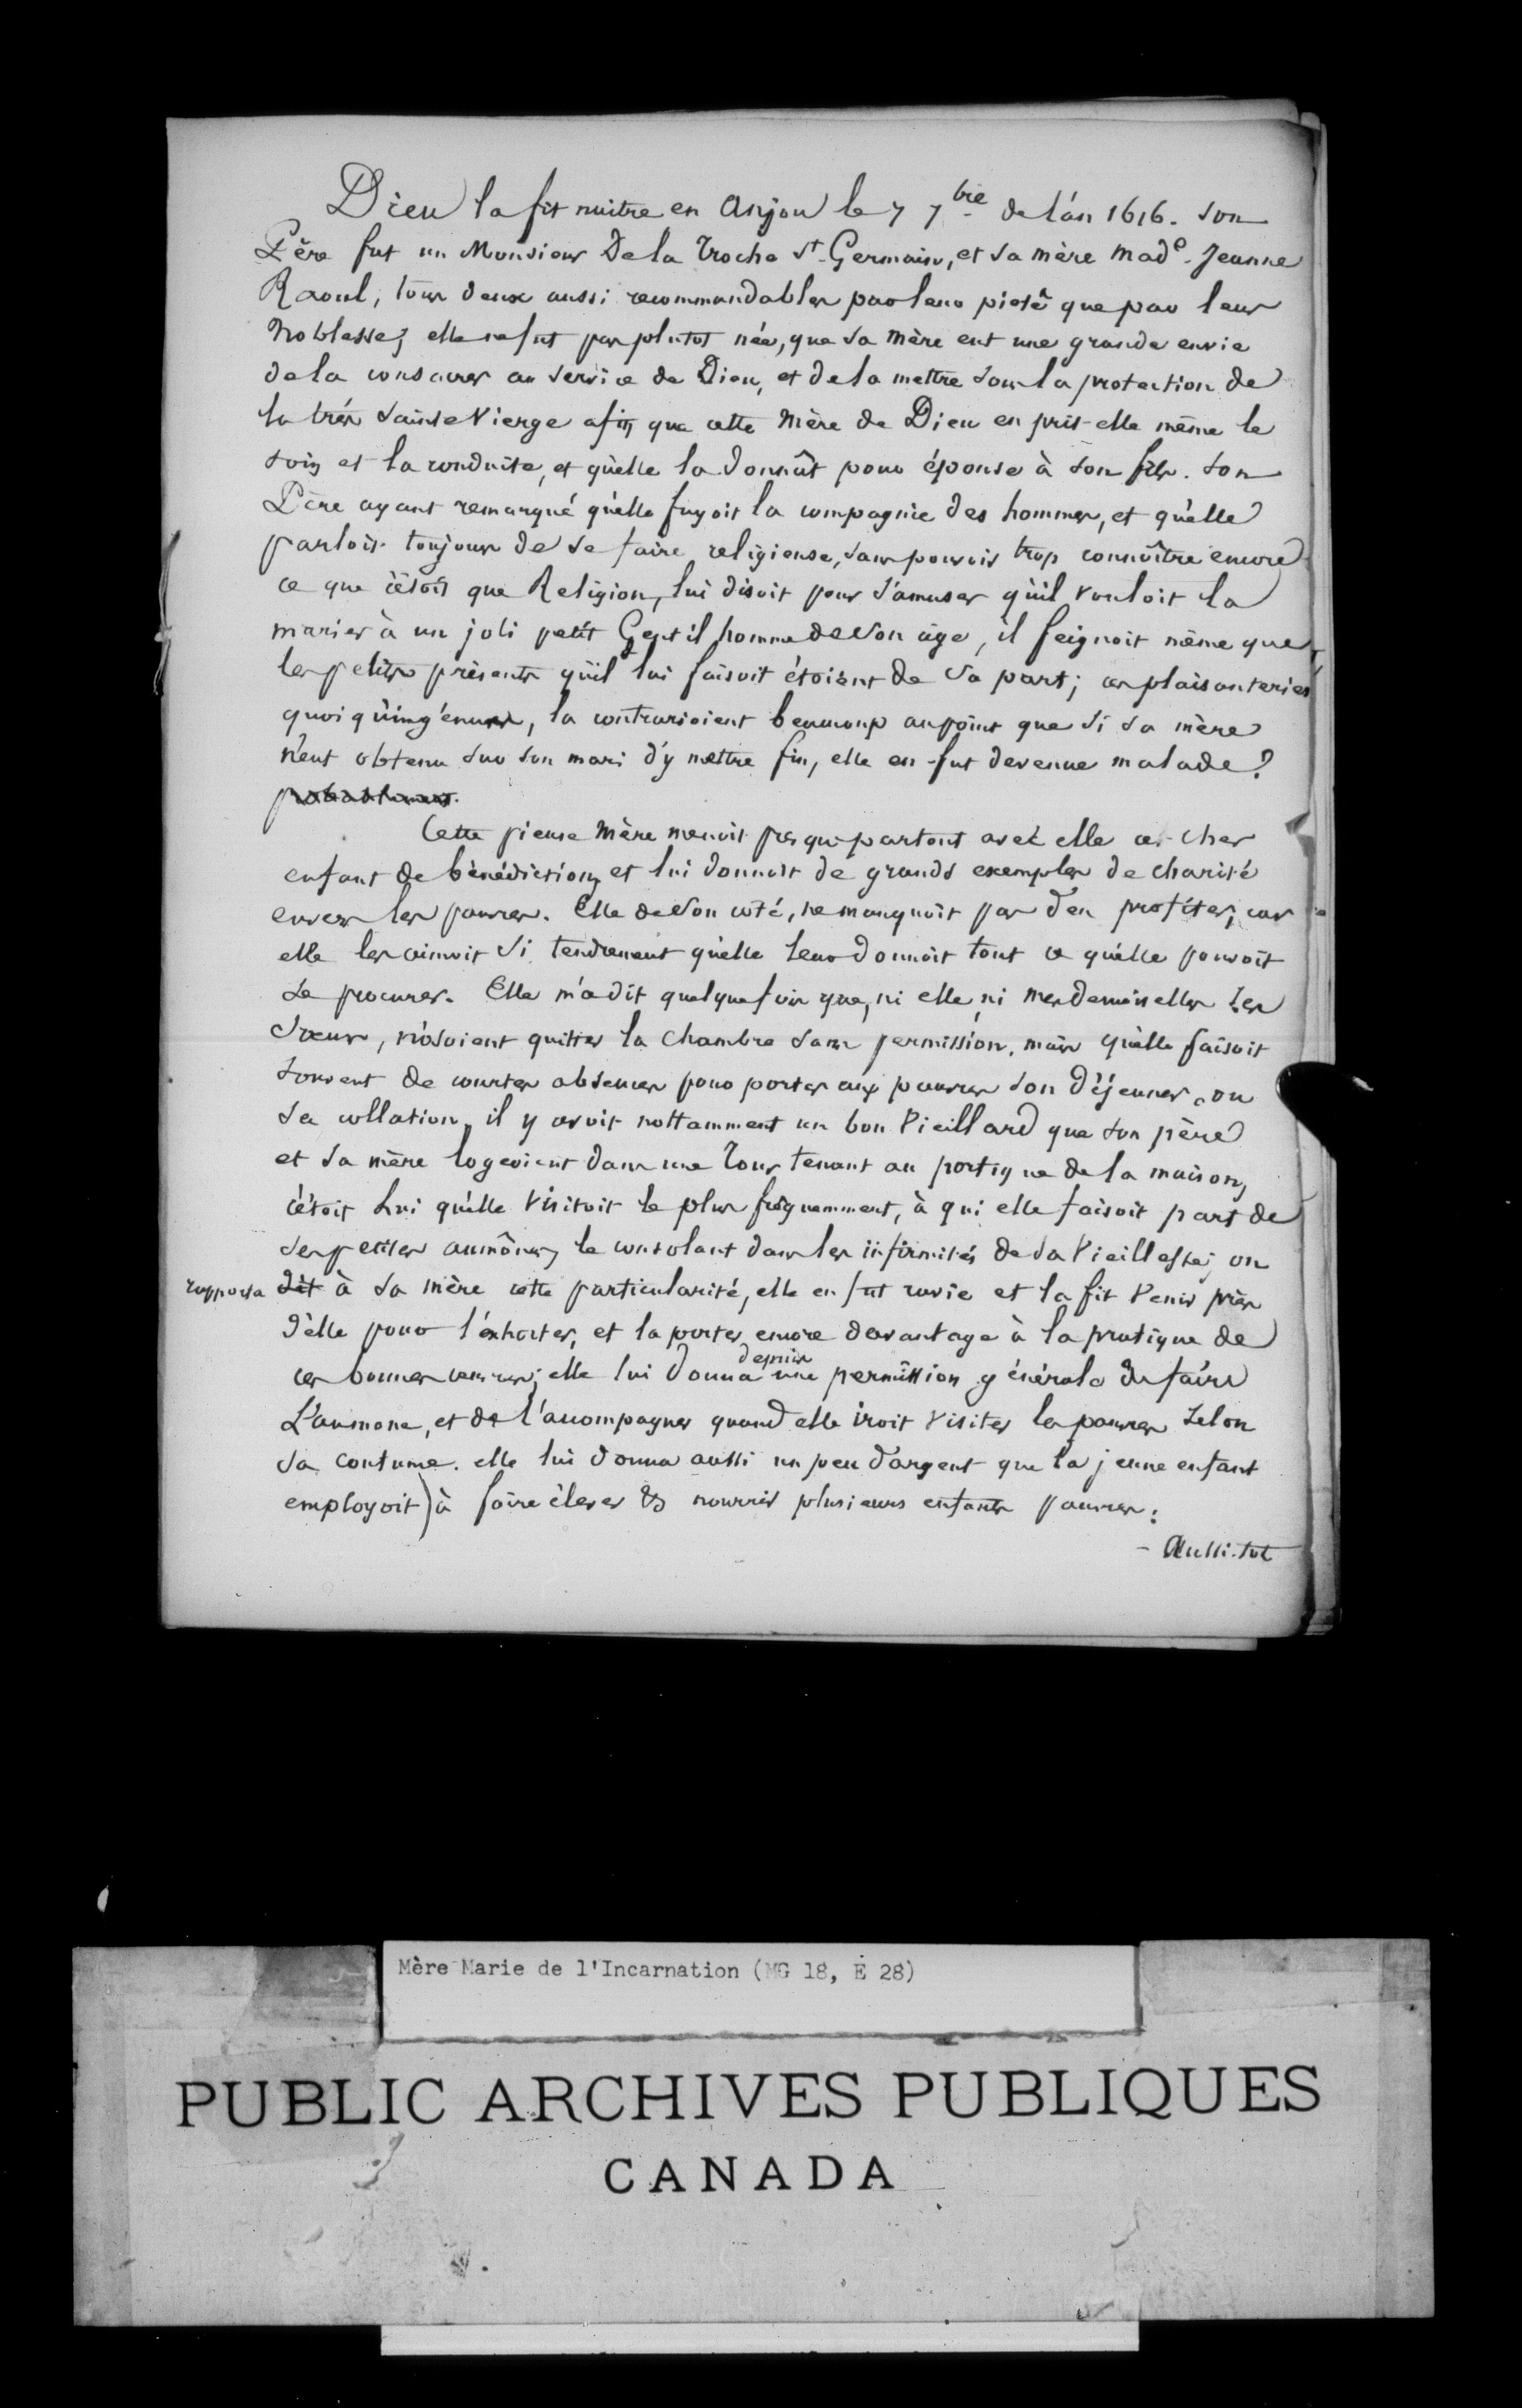 Dieu la fit naitre en Anjou le 7 7bre de l'an 1616. Son
Père fut un Monsieur De la Troche St. Germain, et sa mère Made. Jeanne
Raoul, tous deux aussi recommandables par leur pieté que par leur
Noblesse; elle ne fut pas plutot née, que sa mère eut une grande envie
de la consacrer au service de Dieu, et de la mettre sous la protection de
la très Sainte Vierge afin que cette Mère de Dieu en prit elle même le
soin et la conduite, et qu'elle la donnât pour épouse à son fils. Son
Père ayant remarqué qu'elle fuyoit la compagnie des hommes, et qu'elle
parloit toujours de se faire religieuse, sans pouvoir trop connoître encore
ce que c'étoit que Religion, lui disoit pour s'amuser qu'il vouloit la
marier à un joli petit Gentil homme de son âge, il feignoit même que
les petits présents qu'il lui faisoit étoient de sa part; ces plaisanteries
quoiqu'ingénues, la contrarioient beaucoup au point que si sa mère
n'eut obtenu sur son mari d'y mettre fin, elle en fut devenue malade?
probablement.
Cette pieuse Mère menoit presque partout avec elle ce cher
enfant de bénédiction, et lui donnoit de grands exemples de charité
envers les pauvres. Elle de son coté, ne manquoit pas d'en profiter; car
elle les aimoit si tendrement qu'elle leur donnoit tout ce qu'elle pouvoit
se procurer. Elle m'a dit quelquefois que, ni elle, ni mesdemoiselles ses
Sœurs, n'osoient quitter la chambre sans permission, mais qu'elle faisoit
souvent de courtes absences pour porter aux pauvres son déjeuner, ou
sa collation, il y avoit nottamment un bon Vieillard que son père
et sa mère logeoient dans une Tour tenant au portique de la maison,
c'étoit lui qu'elle visitoit le plus fréquemment, à qui elle faisoit part de
ses petites aumônes, le consolant dans les infirmités de sa Vieillesse; on
rapporta dit à sa mère cette particularité, elle en fut ravie et la fit venir près
d'elle pour l'exhorter, et la porter encore davantage à la pratique de
depuis
ces bonnes œuvres; elle lui donna une permission générale de faire
L'aumone, et de l'accompagner quand elle iroit visiter les pauvres selon
sa coutume. elle lui donna aussi un peu d'argent que la jeune enfant
employoit à faire élever & nourrir plusieurs enfants pauvres.
- Aussi-tot
Mère Marie de l'Incarnation (MG 18, E 28)
PUBLIC ARCHIVES PUBLIQUES
CANADA